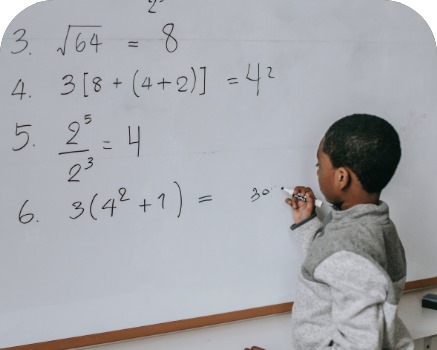 3. √64 = 8
4. 3[8 + (4+2)] = 42
5. 2⁵/2³ = 4
6. 3(4² + 1) =